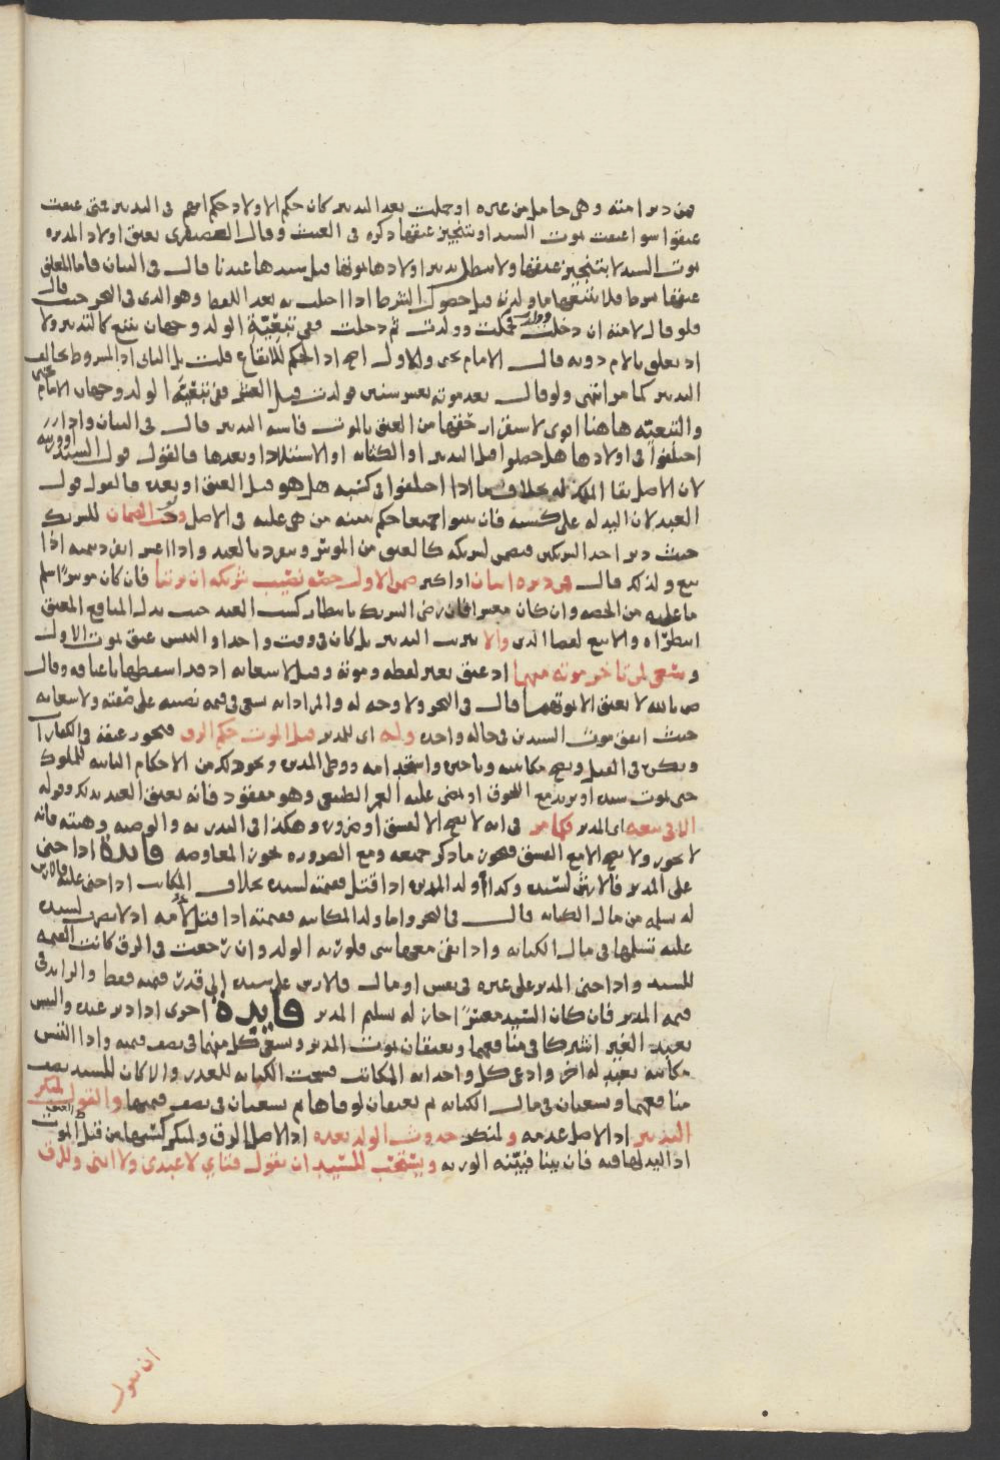 فمن دبر امته وهي حامل من غيره او حملت بعد التدبير كان حكم الاولاد حكم امهم في التدبير فمتى عتقت
عتقوا سوا اعتقت بموت السيد او بتنجيز عتقها ذكره في الغيث وقال العصيفري يعتق اولاد المدبره
بموت السيد لا بتنجيز عتقها ولا يبطل تدبير اولادها بموتها قبل سيدها عندنا قال في البيان فاما المعلق
عتقها بشرط فلا يتبعها ما ولدته قبل حصول الشرط اذا حملت به بعد اللفظ وهو الذي في البحر حيث قال
فلو قال لامته ان دخلت فحملت وولدت ثم دخلت ففي تبعيّة الولد وجهان يتبع كالتدبير ولا
اذ يعلق بالام دونه قال الامام يحيى والاول اصح اذ الحكم للايقاع قلت بل الثاني اذ المشروط يخالف
التدبير كما مر انتهى ولو قال بعد موته بعشر سنين فولدت قبل العتق ففي تبعيّة الولد وجهان الامام يحيى
والتبعيّة هاهنا اقوى لاستقرار حقها من العتق بالموت فاشبه التدبير قال في البيان واذا
اختلفوا في اولادها هل حملوا قبل التدبير او الكتابه او الاستيلاد او بعدها فالقول قول السيد او ورثته
لان الاصل بقا الملك له بخلاف ما اذا اختلفوا في كسبه هل هو قبل العتق او بعده فالقول قول
العبد لان اليد له على كسبه فان بينوا جميعا حكم ببينه من هي عليه في الاصل ويجب الضمان للشريك
حيث دبر احد الشريكين فيضمن لشريكه كالعتق من الموسر ويتفرد بالعبد واذا اعسر اتفق دينه اذا
بيع ولذلك قال فمن دبره اثنان اذا اكثر ضمن الاول حصّة نصيب شريكه ان ترتبا فان كان موسرًا سلم
ما عليه من الحصه وان كان معسرا فان رضي الشريك بانتظار كسب العبد حيث بذل المنافع المعتق
انتظراه والا بيع لقضا الدين والا يترتب التدبير بل كان في وقت واحد او التبس عتق بموت الاول
ويسعى لمن تاخر موته منهما اذ عتق بغير لفظه وموته وقيل لا سعايه اذ قد اسقطها باعتاقه وقال
ص بالله لا يعتق الا بموتهما قال في البحر ولا وجه له والمراد انه يسعى في قيمه نصيبه على صفته ولا سعايه
حيث اتفق موت السيدين في حاله واحده وله اي للمدبر قبل الموت حكم الرق فيجوز عتقه في الكفارات
ويكره في القتل ويصح مكاتبته وتاجيره واستخدامه ووطي المدبره ونحو ذلك من الاحكام الثابته للمملوك
حتى يموت سيده او يرتد مع اللحوق او يمضي عليه العمر الطبيعي وهو مفقود فانه يعتق العبد بذلك وقوله
الا في بيعه اي المدبر فكما مر في انه لا يصح الا لفسق او ضروره وهكذا في النذر به والوصيه وهبته فانه
لا يجوز ولا يصح الا مع الفسق فيجوز ما ذكر جميعه ومع الضروره يجوز المعاوضه فايدة اذا جني
على المدبر فالارش لسيّده وكذا ولد المدبره اذا قتل فقيمته لسيده بخلاف المكاتب اذا جني عليه فالارش
له يسلمه من مال الكتابه قال في البحر واما ولد المكاتبه فقيمته اذا قتل لامه اذ لا يضر لسيده
عليه تسلمها في مال الكتابه واذا بقي معها شي فلورثه الولد وان رجعت في الرق كانت القيمه
للسيد واذا جنى المدبر على غيره في نفس او مال فالارش على سيده الى قدر قيمته فقط والزايد في
قيمه المدبر فان كان السّيد معسرًا جاز له تسليم المدبر فايدة اخرى اذا دبر عبده والتبس
بعبد الغير اشتركا في منافعهما ويعتقان بموت المدبر ويسعى كل منهما في نصف قيمته واذا التبس
مكاتبه بعبد له اخر وادعى كل واحد انه المكاتب فسخت الكتابه للعذر والا كان للسيد نصف
منافعهما ويسعيان في مال الكتابه ثم يعتقان لوفاهما ثم يسعيان في نصف قيمتهما والقول لمنكر
التدبير اذ الاصل عدمه ولمنكر حدوث الولد بعده اذ الاصل الرق ولمنكر كسبهما من قبل الموت
اذ اليد لهما فيه فان بينا فبيّنه الورثه ويستحب للسّيد ان يقول فتاي لا عبدي ولا امتي وللرق
ان يقول